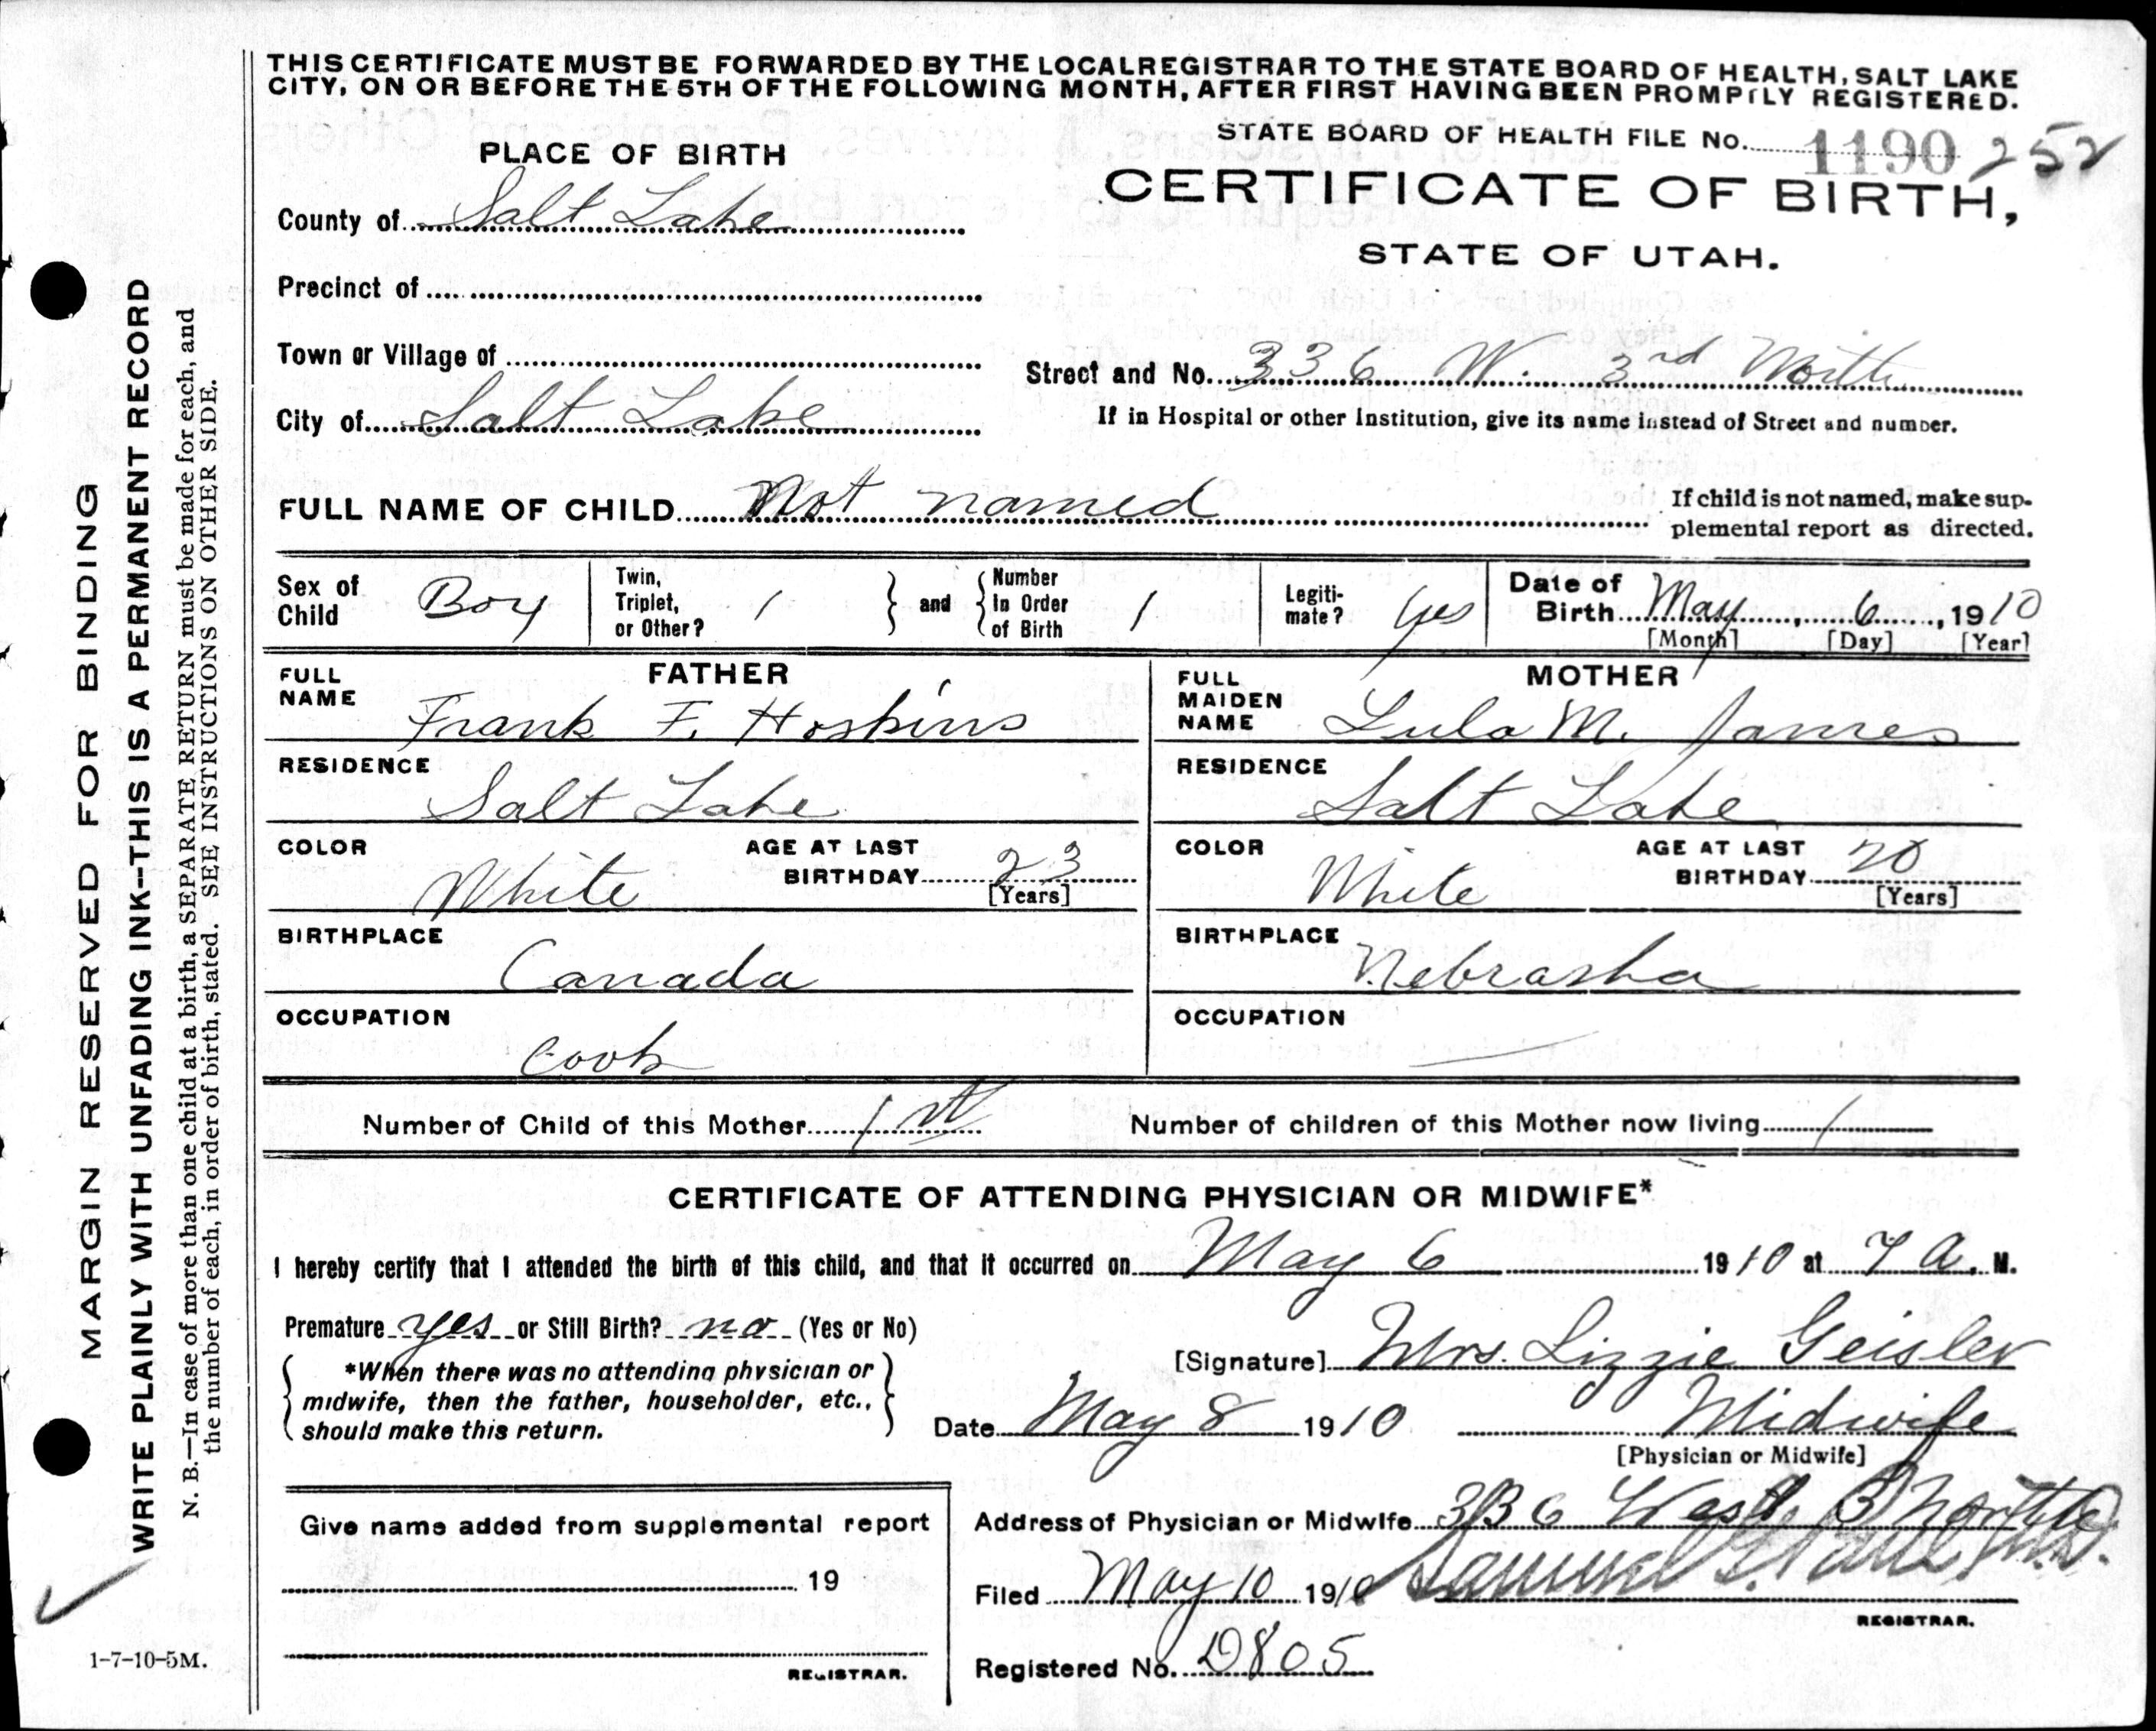 THIS CERTIFICATE MUST BE FORWARDED BY THE LOCAL REGISTRAR TO THE STATE BOARD OF HEALTH, SALT LAKE
CITY, ON OR BEFORE THE 5TH OF THE FOLLOWING MONTH, AFTER FIRST HAVING BEEN PROMPTLY REGISTERED.
STATE BOARD OF HEALTH FILE No. 1190 252
PLACE OF BIRTH
CERTIFICATE OF BIRTH,
STATE OF UTAH.
County of Salt Lake
Precinct of
Town or Village of
Street and No. 336 W. 3rd North
City of Salt Lake
If in Hospital or other Institution, give its name instead of Street and number.
FULL NAME OF CHILD Not named
If child is not named, make sup-
plemental report as directed.
Sex of Child Boy
Twin, Triplet, or Other? 1
and Number In Order of Birth 1
Legiti-mate? Yes
Date of Birth May 6, 1910
[Month] [Day] [Year]
FATHER
FULL NAME Frank F. Hoskins
RESIDENCE Salt Lake
COLOR White
AGE AT LAST BIRTHDAY 23
[Years]
BIRTHPLACE Canada
OCCUPATION Cook
MOTHER
FULL MAIDEN NAME Lula M. James
RESIDENCE Salt Lake
COLOR White
AGE AT LAST BIRTHDAY 20
[Years]
BIRTHPLACE Nebraska
OCCUPATION —
Number of Child of this Mother 1st
Number of children of this Mother now living 1
CERTIFICATE OF ATTENDING PHYSICIAN OR MIDWIFE*
I hereby certify that I attended the birth of this child, and that it occurred on May 6 1910 at 7 A. M.
Premature yes or Still Birth? no (Yes or No)
*When there was no attending physician or
midwife, then the father, householder, etc.,
should make this return.
[Signature] Mrs. Lizzie Geisler
Date May 8 1910 Midwife
[Physician or Midwife]
Address of Physician or Midwife 336 West 3 North
Filed May 10 1910 Samuel G. Paul M.D.
REGISTRAR.
Registered No. D805
Give name added from supplemental report
19
REGISTRAR.
MARGIN RESERVED FOR BINDING
WRITE PLAINLY WITH UNFADING INK--THIS IS A PERMANENT RECORD
N. B.—In case of more than one child at a birth, a SEPARATE RETURN must be made for each, and
the number of each, in order of birth, stated. SEE INSTRUCTIONS ON OTHER SIDE.
1-7-10-5M.